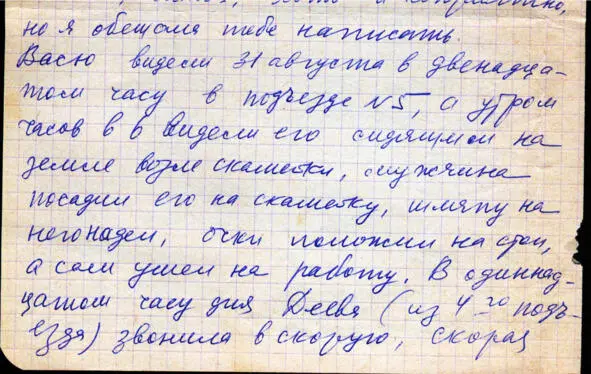 но я обещала тебе написать.
Васю видели 31 августа в двенадца-
том часу в подъезде №5, а утром
часов в 6 видели его сидящим на
земле возле скамейки, мужчина
посадил его на скамейку, шляпу на
него надел, очки положил на стол,
а сам ушел на работу. В одиннад-
цатом часу дня Деева (из 4го подъ-
езда) звонила в скорую, скорая